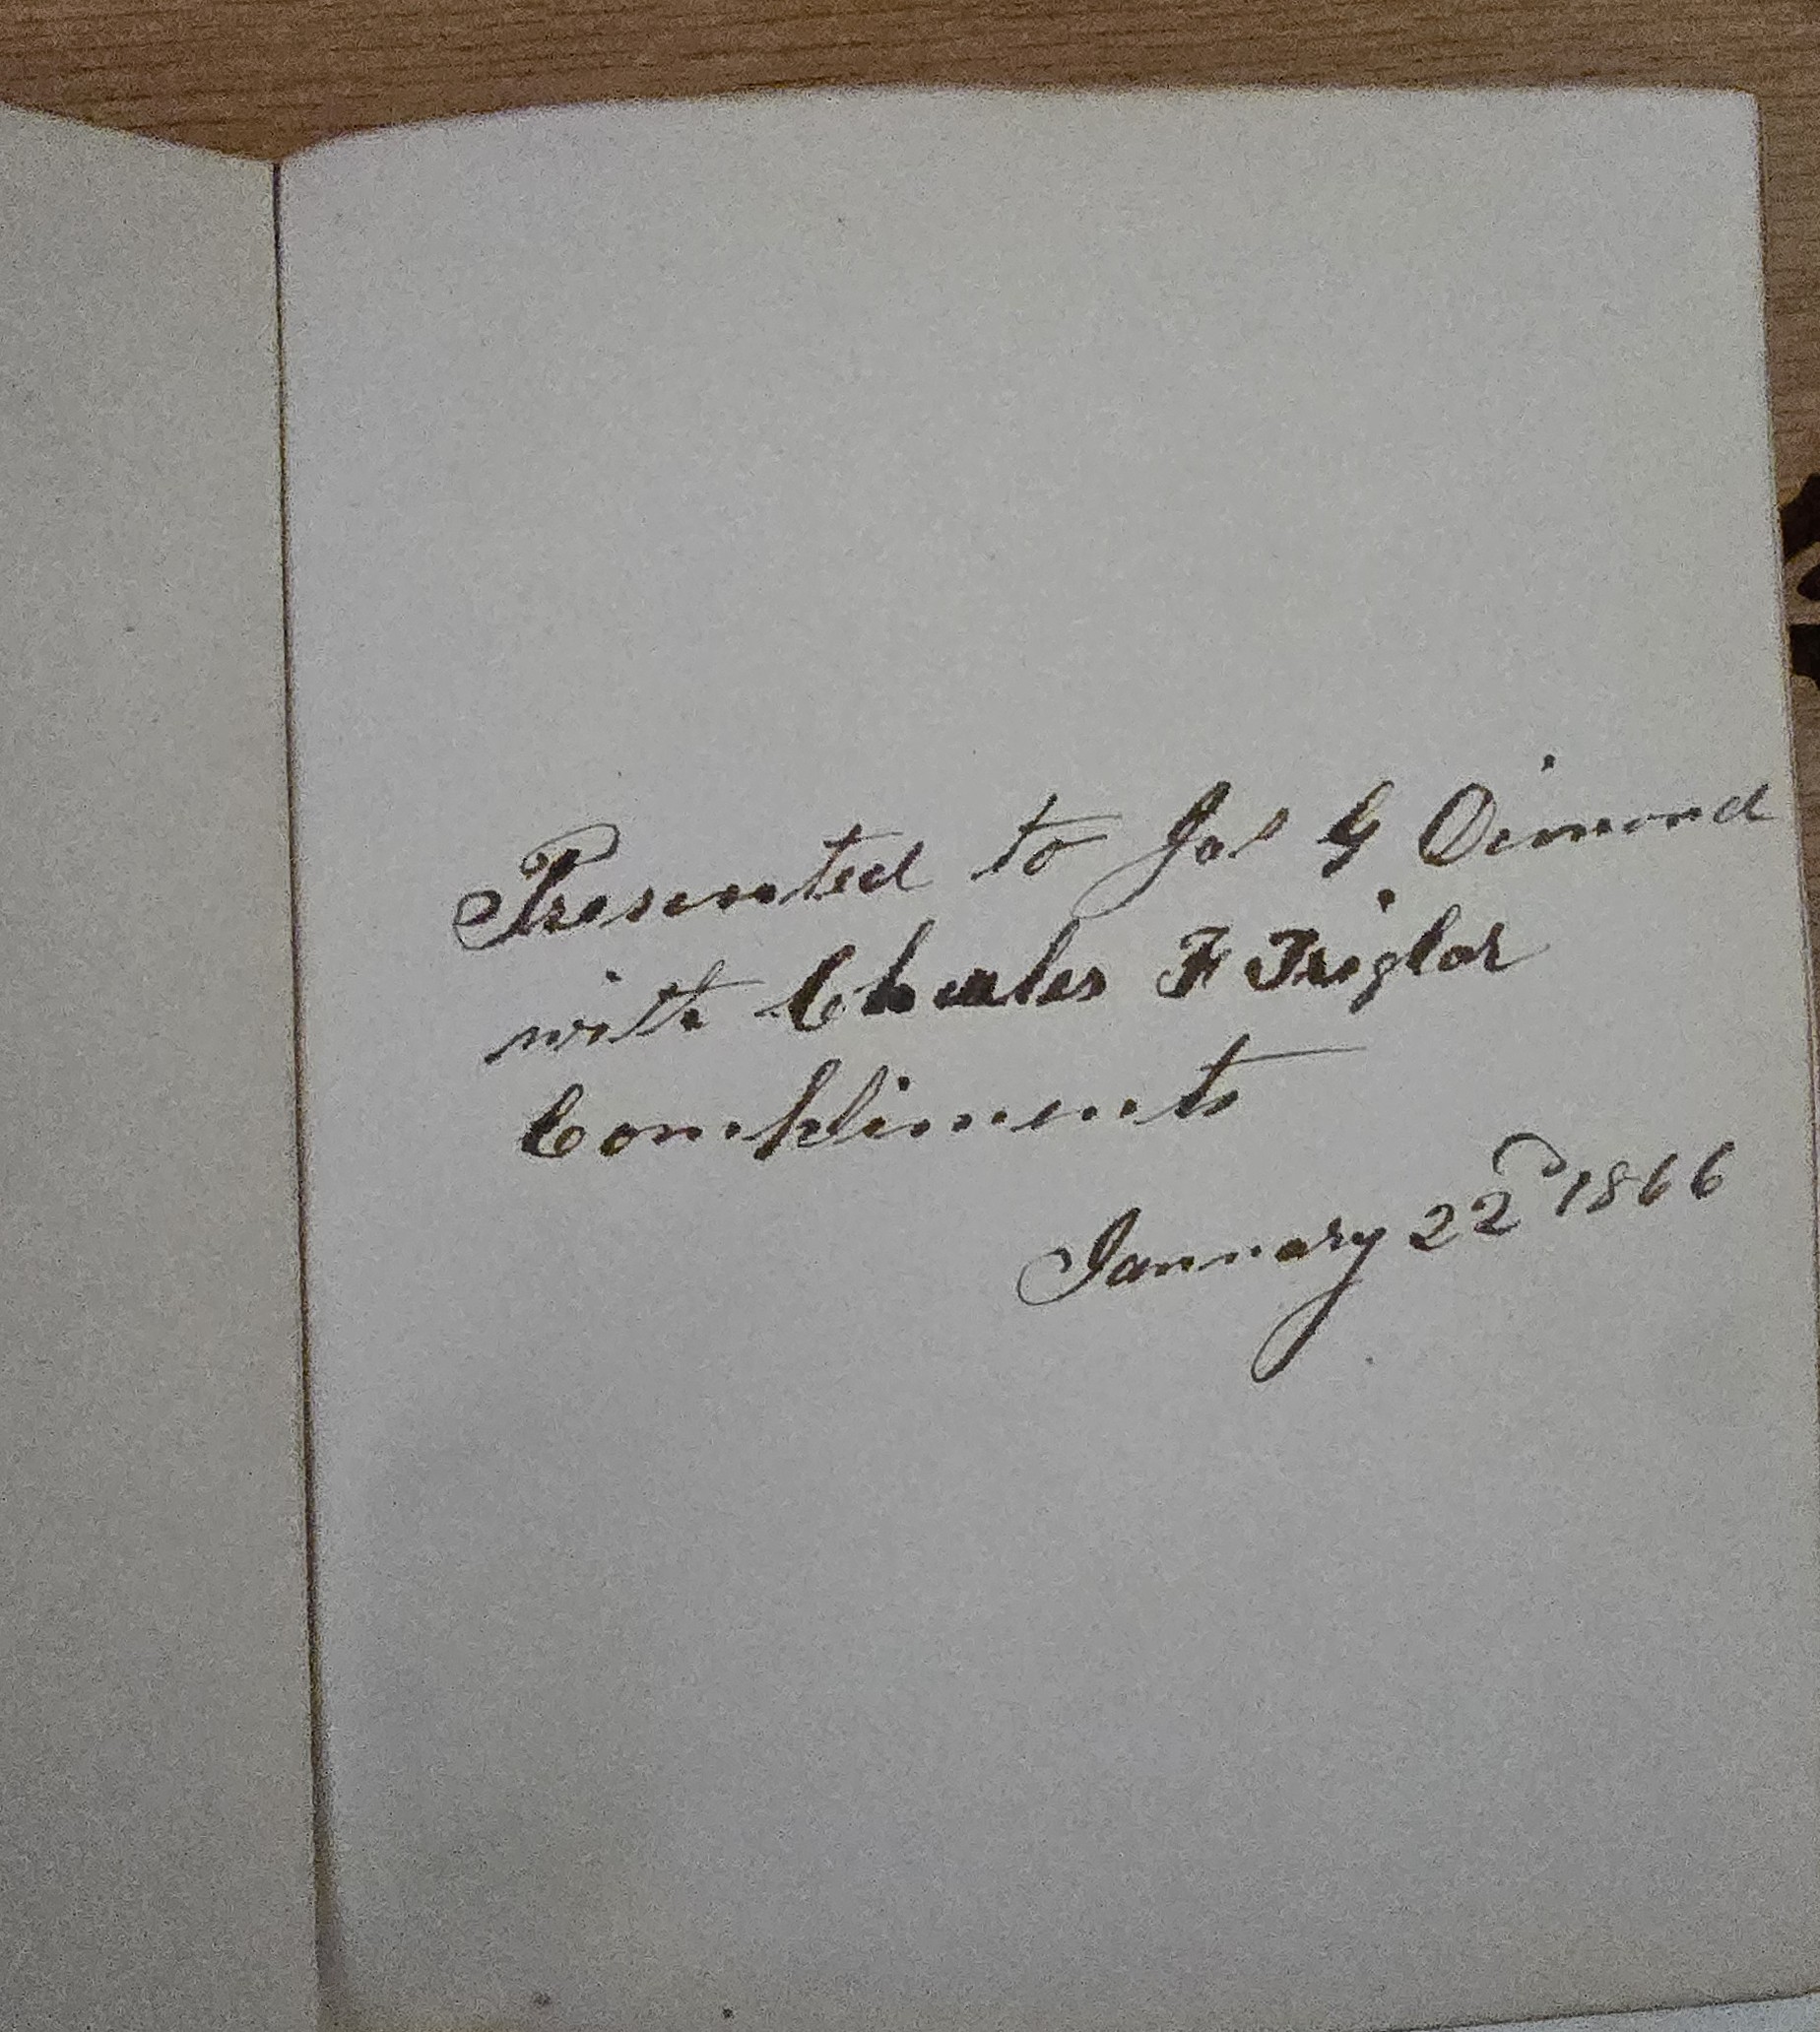 Presented to Jas G Dimond
with Charles F Triglar
Compliments
January 22d 1866